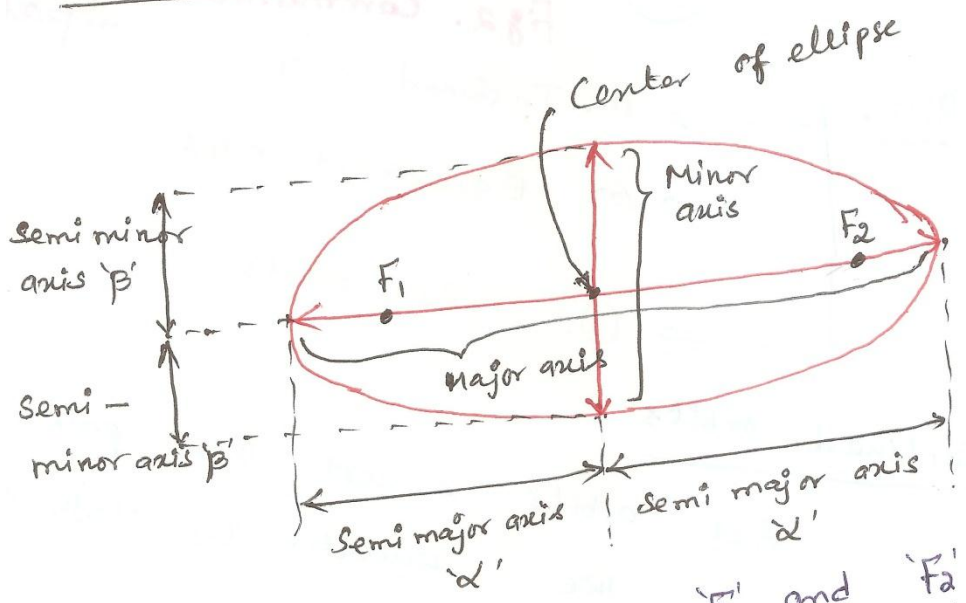 Center of ellipse
Minor
axis
Semi minor
axis 'β'
F1
F2
Major axis
Semi -
minor axis 'β'
Semi major axis
'α'
Semi major axis
'α'
and 'F2'